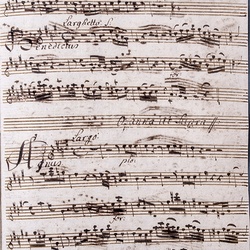 Larghetto
Benedictus
Osanna ut supra
Largo
Agnus